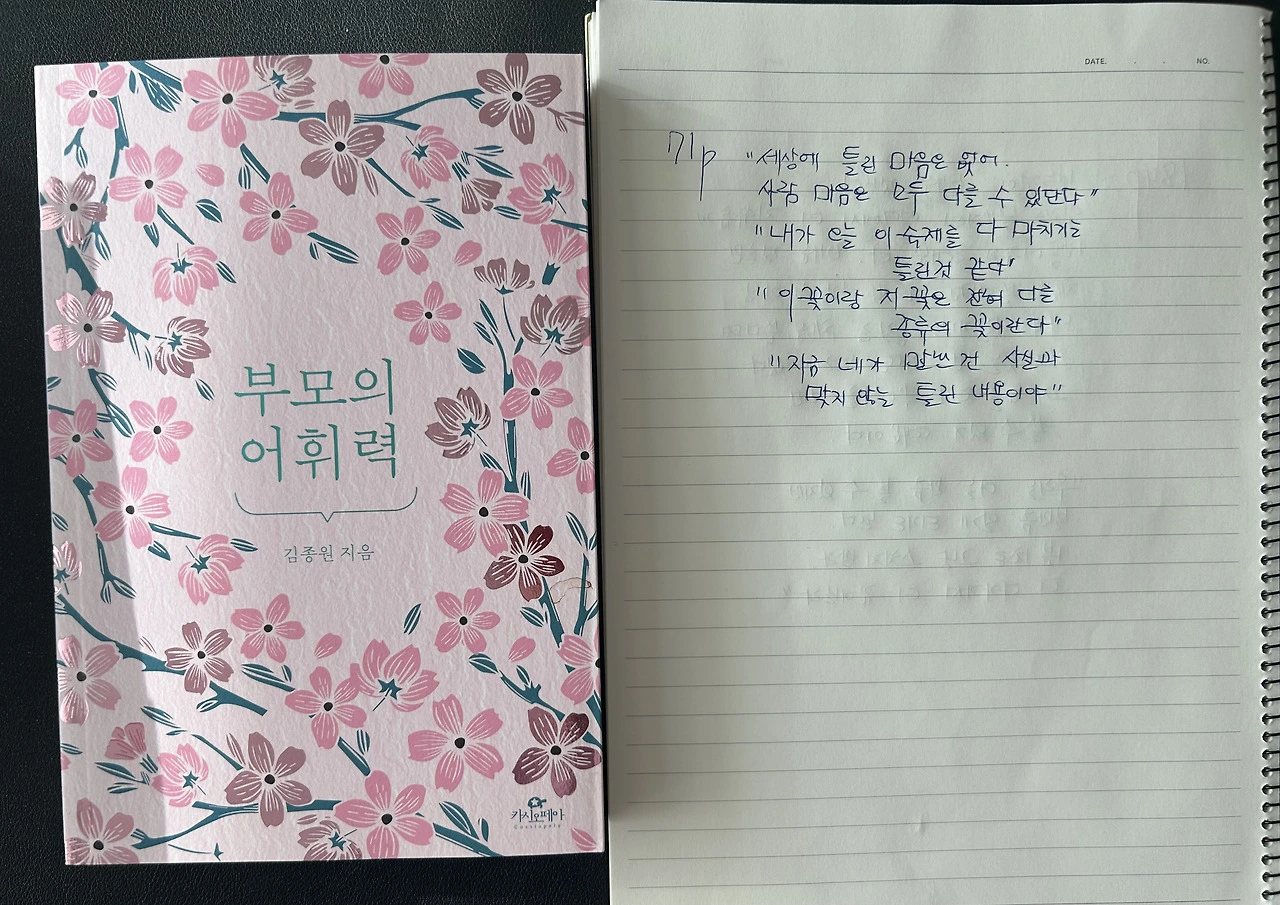 부모의
어휘력
김종원 지음
카시오페아
Cassiopeia
DATE. . . NO.
71p "세상에 틀린 마음은 없어.
사람 마음은 모두 다를 수 있단다"
"내가 오늘 이 숙제를 다 마치기는
틀린것 같다"
"이 꽃이랑 저 꽃은 전혀 다른
종류의 꽃이란다"
"지금 네가 말한 건 사실과
맞지 않는 틀린 내용이야"